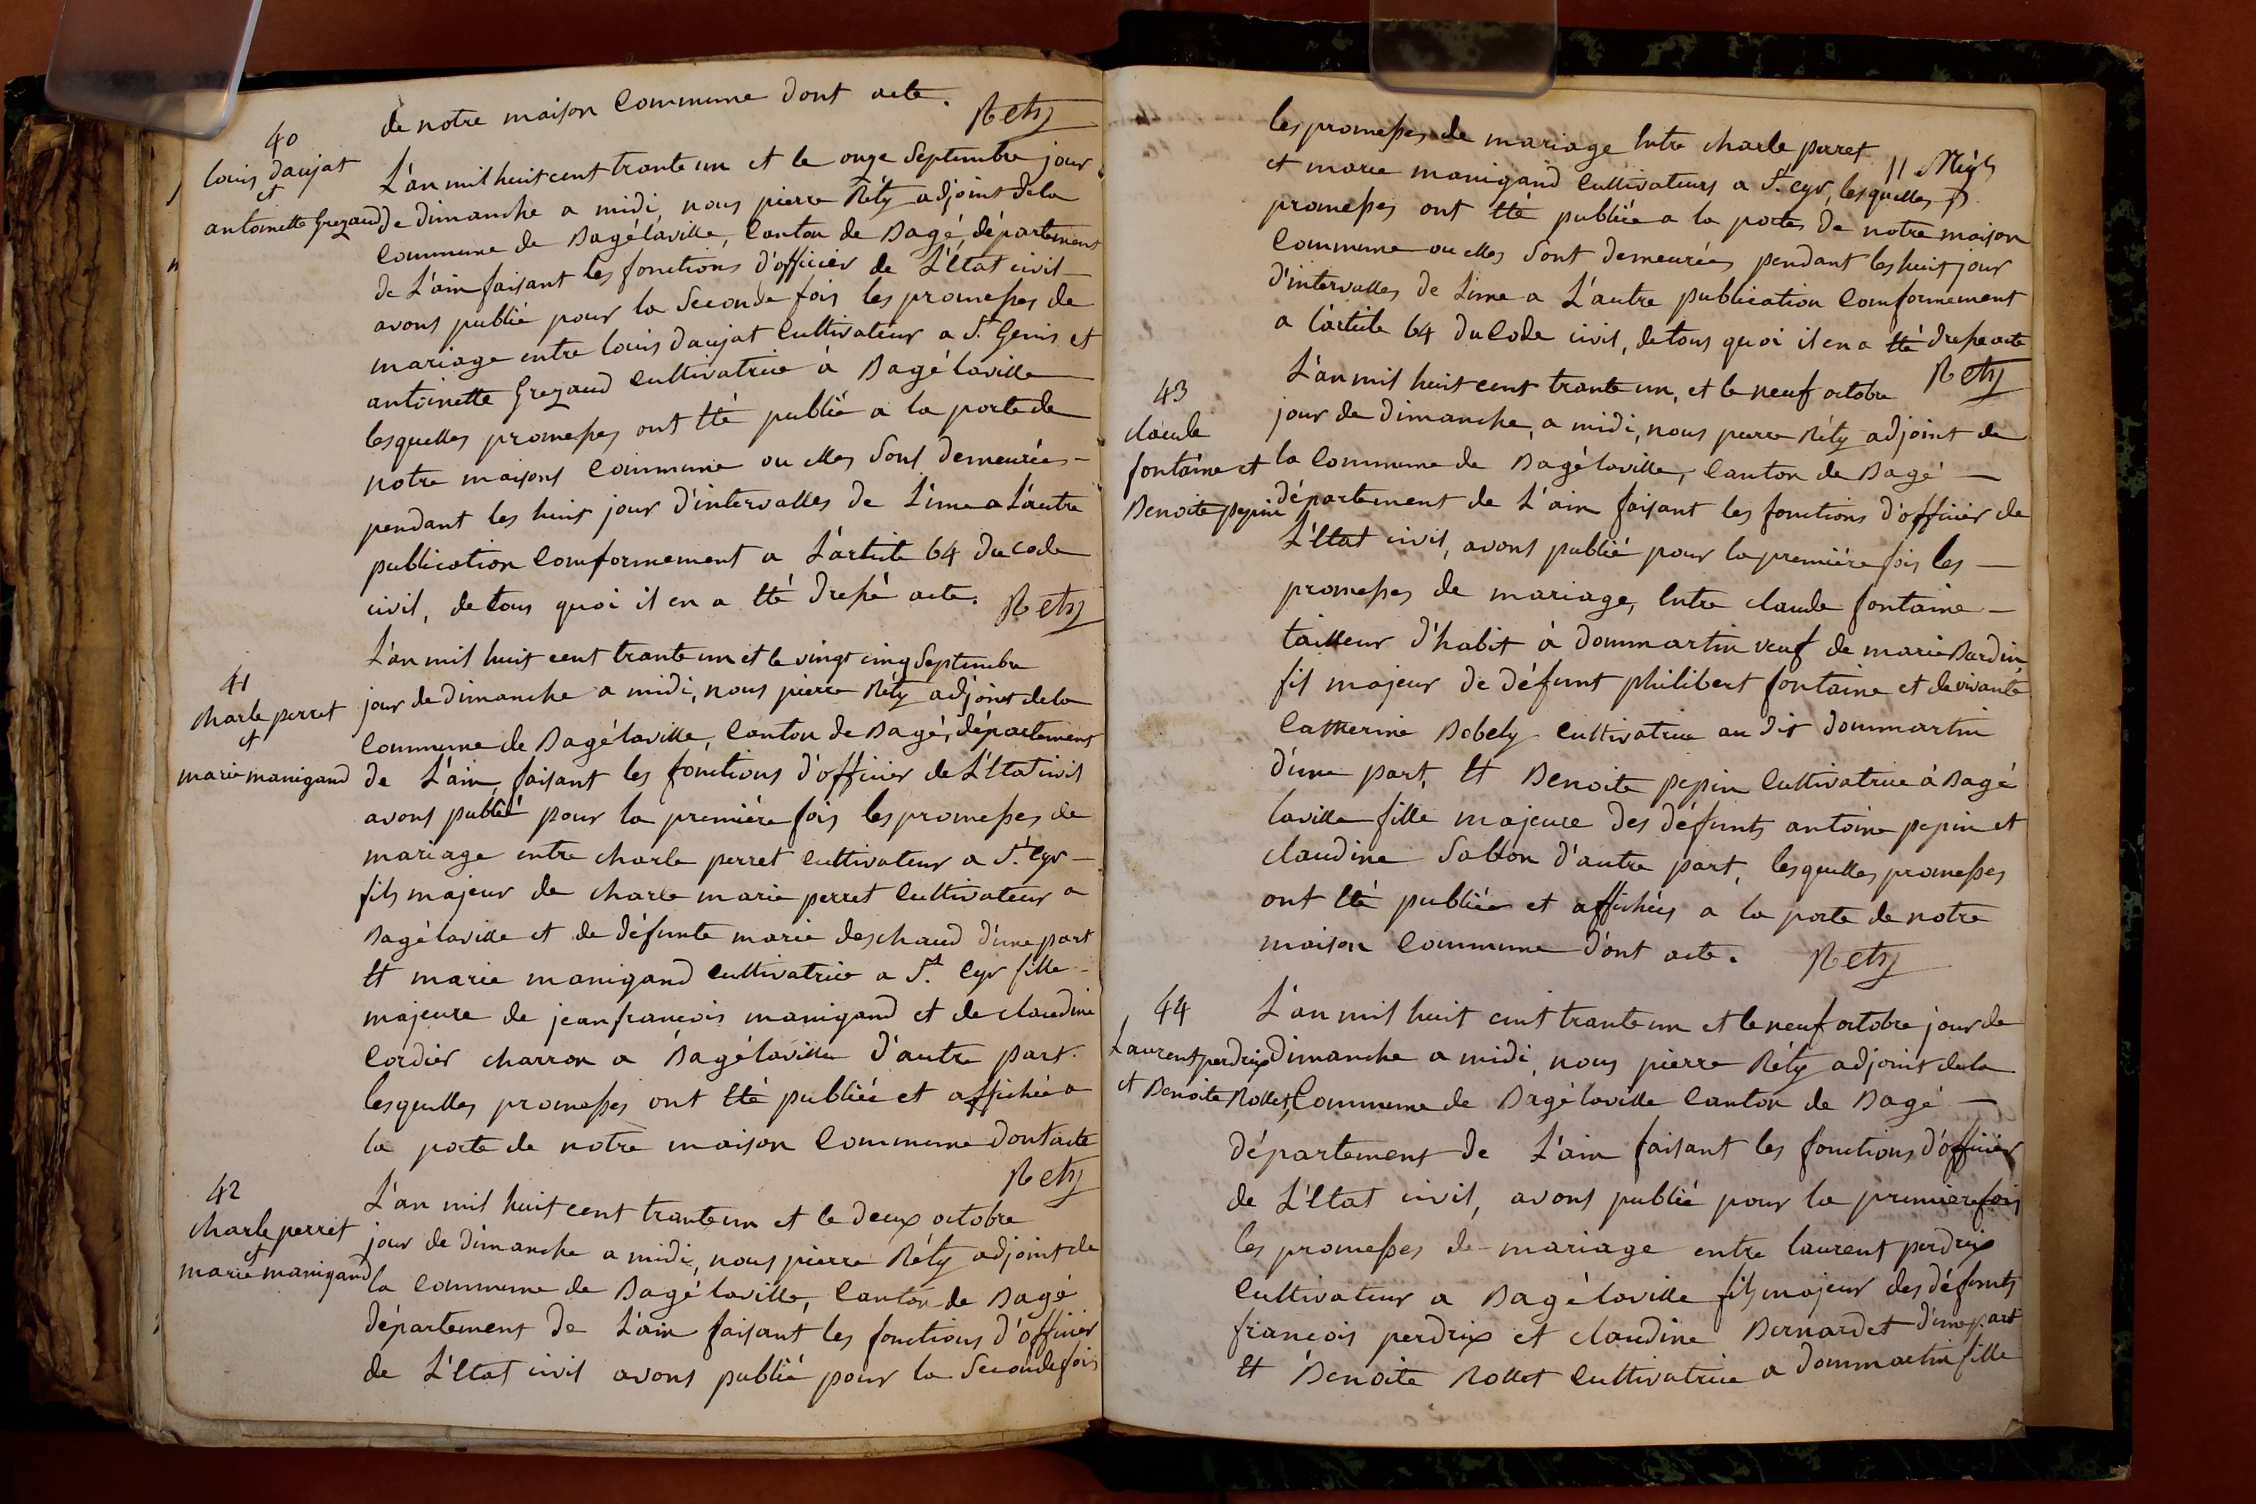 de notre maison Commune dont acte.
Rety
40
louis daujat
et
antoinette Grezaud
L'an mil huit cent trante un et le onze Septembre jour
de dimanche a midi, nous pierre Réty adjoint de la
Commune de Bagé laville, Canton de Bagé, département
de L'ain faisant les fonctions d'officier de L'Etat civil
avons publié pour la Seconde fois les promesses de
mariage entre louis daujat Cultivateur a St. Genis et
antoinette Grezaud Cultivatrice à Bagé laville
lesquelles promesses ont Eté publié a la porte de
notre maisons Commune ou elles Sont demeurées
pendant les huit jour d'intervalles de L'une a L'autre
publication Comformement a L'article 64 du Code
civil, de tous quoi il en a Eté dressé acte.
Rety
41
charle perret
et
marie manigand
L'an mil huit cent trante un et le vingt cinq Septembre
jour de dimanche a midi, nous pierre Réty adjoint de la
Commune de Bagé laville, Canton de Bagé, département
de L'ain, faisant les fonctions d'officier de L'Etat civil
avons publié pour la première fois les promesses de
mariage entre charle perret Cultivateur a St. Cyr
fils majeur de charle marie perret Cultivateur a
Bagé laville et de défunte marie deschaud d'une part
Et marie manigand Cultivatrice a St. Cyr fille
majeure de jean francois manigand et de claudine
Cordier charron a Bagé laville d'autre part.
lesquelles promesses ont Eté publiée et affichée a
la porte de notre maison Commune dont acte
Rety
42
charle perret
et
marie manigand
L'an mil huit cent trante un et le deux octobre
jour de dimanche a midi, nous pierre Réty adjoint de
la Commune de Bagé laville, Canton de Bagé
département de L'ain faisant les fonctions d'officier
de L'Etat civil avons publié pour la Seconde fois
les promesses de mariage Entre charle perret
et marie manigand Cultivateurs a St. Cyr, lesquelles
promesses ont Eté publiée a la portes de notre maison
Commune ou elles Sont demeurées pendant les huit jour
d'intervalles de L'une a L'autre publication Comformement
a L'article 64 du Code civil, de tous quoi il en a Eté dresse acte
Rety
43
claude
fontaine et
Benoite pepin
L'an mil huit cent trante un, et le neuf octobre
jour de dimanche, a midi, nous pierre Réty adjoint de
la Commune de Bagé laville, Canton de Bagé
département de L'ain faisant les fonctions d'officier de
L'Etat civil, avons publié pour la première fois les
promesses de mariage, Entre claude fontaine
tailleur d'habit à dommartin veuf de marie Bardin
fil majeur de défunt philibert fontaine et de vivante
Catherine Bobely Cultivatrice au dit dommartin
d'une part, Et Benoite pepin Cultivatrice à Bagé
laville fille majeure des défunts antoine pepin et
claudine Sallon d'autre part, lesquelles promesses
ont Eté publiée et affichées a la porte de notre
maison Commune d'ont acte.
Rety
44
Laurent perdrix
et Benoite Rollet
L'an mil huit cent trante un et le neuf octobre jour de
dimanche a midi, nous pierre Réty adjoint de la
Commune de Bagé laville Canton de Bagé
département de L'ain faisant les fonctions d'officier
de L'Etat civil, avons publié pour la première fois
les promesses de mariage entre laurent perdrix
Cultivateur a Bagé laville fils majeur des défunts
francois perdrix et claudine Bernardet d'une part
Et Benoite Rollet Cultivatrice a dommartin fille